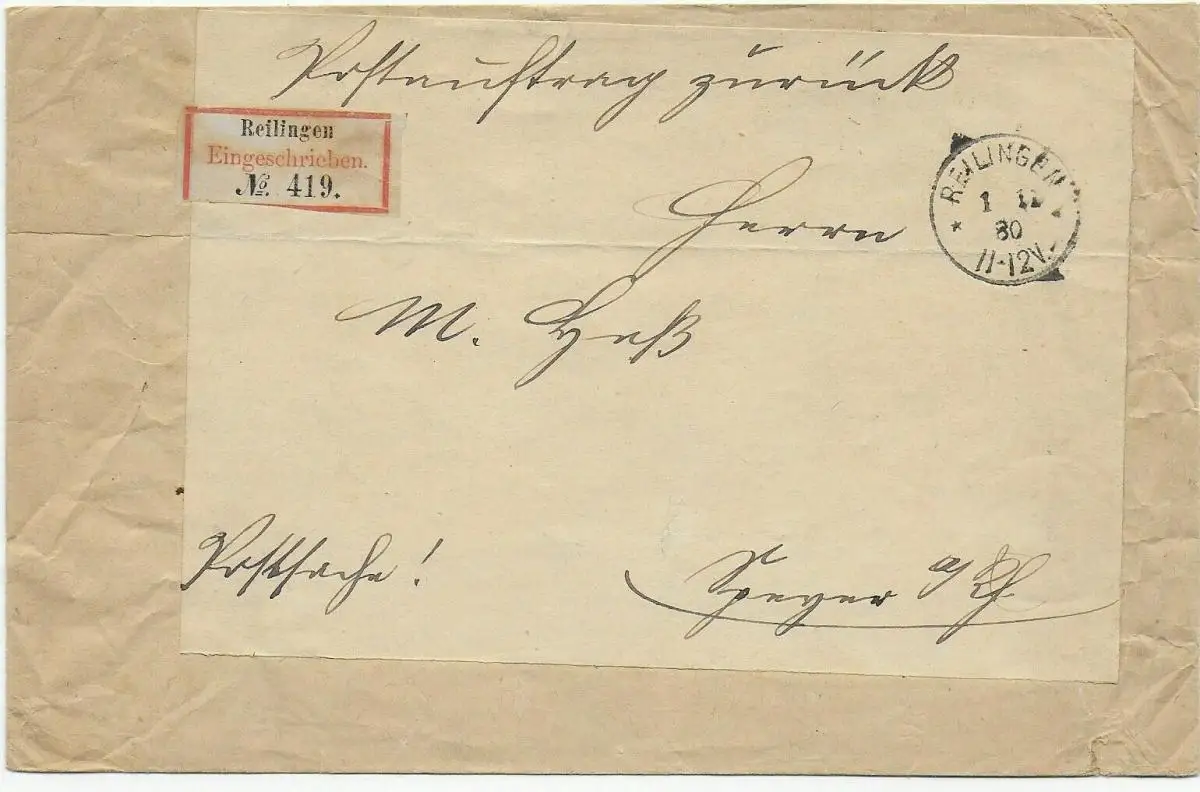 Postauftrag zurück
Reilingen
Eingeschrieben.
№. 419.
REILINGEN
1 11
80
11-12V.
Herrn
M. Heß
Postsache!
Speyer a/Rh.